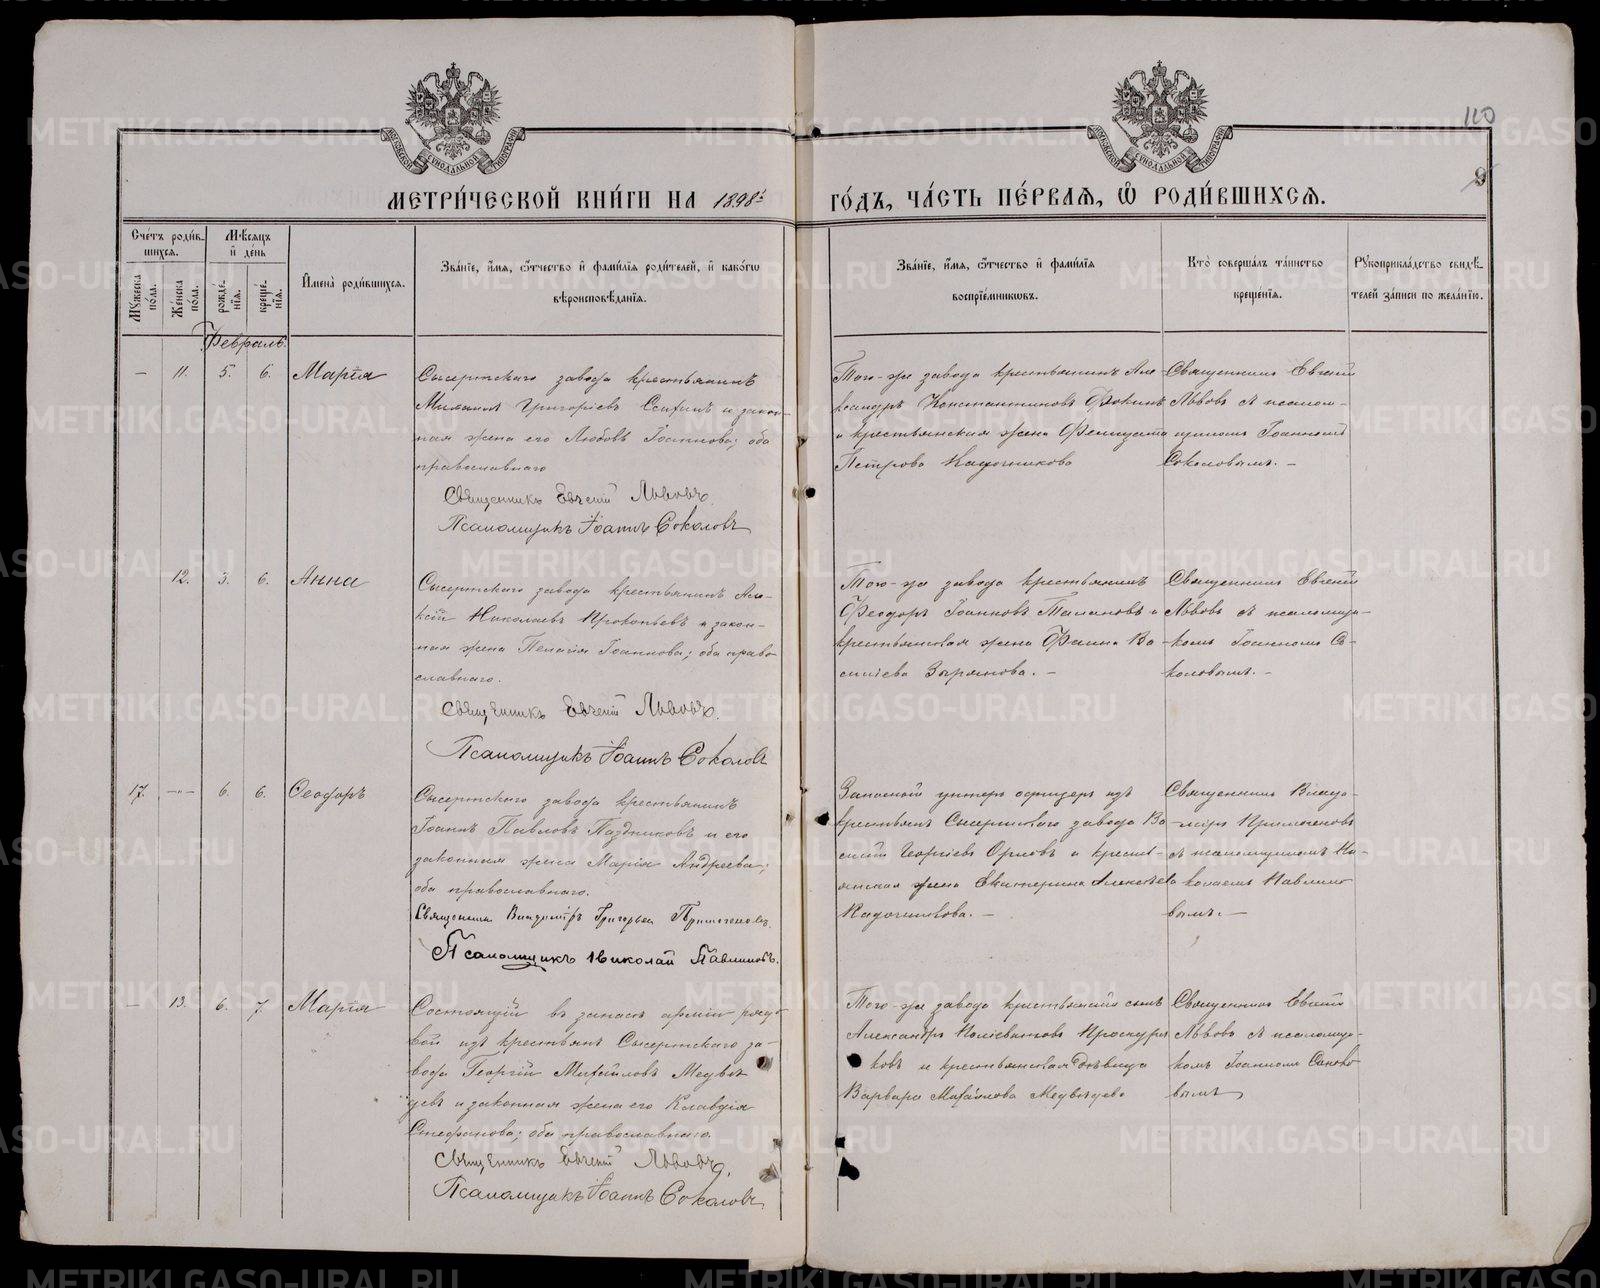 110
9
МОСКОВСКОЙ СѴНОДАЛЬНОЙ ТИПОГРАФІИ
МОСКОВСКОЙ СѴНОДАЛЬНОЙ ТИПОГРАФІИ
МЕТРИ́ЧЕСКОЙ КНИ́ГИ НА 1898й
ГО́ДЪ, ЧА́СТЬ ПЕ́РВАЯ, Ѡ РОДИ́ВШИХСЯ.
Сче́тъ роди́в-
шихся.
Му́жеска по́ла.
Же́нска по́ла.
Мѣ́сяцъ
и де́нь
рожде́-
нія.
креще́-
нія.
И҆мена̀ роди́вшихся.
Зва́ніе, и҆́мя, ѻ҆́тчество и҆ фами́лія роди́телей, и҆ како́гѡ
вѣроисповѣ́данія.
Зва́ніе, и҆́мя, ѻ҆́тчество и҆ фами́лія
воспріе́мникѡвъ.
Кто̀ соверша́лъ та́инство
креще́нія.
Рукоприкла́дство свидѣ́-
телей за́писи по жела́нію.
Февраль.
— 11. 5. 6. Марія
Сысертскаго завода крестьянинъ
Михаилъ Григорьевъ и закон-
ная жена его Любовь Іоаннова; оба
православнаго
Священникъ Евгеній Львовъ.
Псаломщикъ Іоаннъ Соколовъ
Того-же завода крестьянинъ Але-
ксандръ Константиновъ Фокинъ
и крестьянская жена Фелицата
Петрова Кадочникова
Священникъ Евгеній
Львовъ съ псалом-
щикомъ Іоанномъ
Соколовымъ. —
12. 3. 6. Анна
Сысертскаго завода крестьянинъ Але-
ксѣй Николаевъ Прокопьевъ и закон-
ная жена Пелагія Іоаннова; оба право-
славнаго.
Священникъ Евгеній Львовъ.
Псаломщикъ Іоаннъ Соколовъ
Того-же завода крестьянинъ
Феодоръ Іоанновъ Талановъ и
крестьянская жена Фаина Ва-
сильева Зырянова. —
Священникъ Евгеній
Львовъ съ псаломщи-
комъ Іоанномъ Со-
коловымъ. —
17. —"— 6. 6. Ѳеодоръ
Сысертскаго завода крестьянинъ
Іоаннъ Павловъ Паздниковъ и его
законная жена Марія Андреева;
оба православнаго.
Священникъ Владиміръ Григорьевъ
Псаломщикъ Николай Павлиновъ.
Запасной унтеръ офицеръ изъ
крестьянъ Сысертскаго завода Ва-
силій Георгіевъ Орловъ и кресть-
янская жена Екатерина Алексѣева
Кадочникова. —
Священникъ Влади-
міръ
съ псаломщикомъ Ни-
колаемъ Павлино-
вымъ. —
— 13. 6. 7. Марія
Состоящій въ запасѣ арміи рядо-
вой изъ крестьянъ Сысертскаго за-
вода Георгій Михайловъ Медвѣ-
девъ и законная жена его Клавдія
Стефанова; оба православнаго.
Священникъ Евгеній Львовъ.
Псаломщикъ Іоаннъ Соколовъ
Того-же завода крестьянскій сынъ
Александръ Поліевктовъ Проскуря-
ковъ и крестьянская дѣвица
Варвара Михайлова Медвѣдева
Священникъ Евгеній
Львовъ съ псаломщи-
комъ Іоанномъ Соколо-
вымъ
METRIKI.GASO-URAL.RU